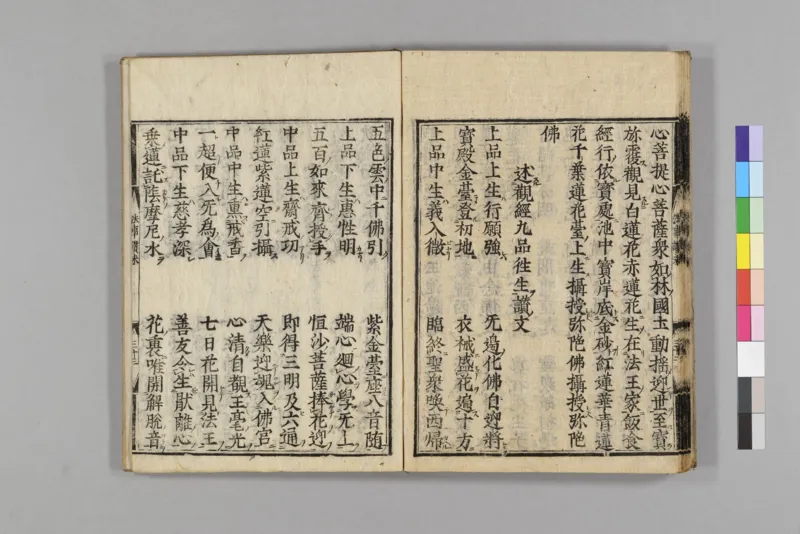 心菩提心菩薩衆如林國土動揺迎世至寳
旅覆觀見白蓮花赤蓮花生在法王家飯食
經行依寳處池中寳岸底金砂紅蓮華青蓮
花千葉蓮花臺上生攝授弥陀佛攝授弥陀
佛
述觀經九品徃生讃文
上品上生行願強 无邊化佛自迎將
寳殿金臺登初地 衣裓盛花遍十方
上品中生義入微 臨終聖衆喚西歸
五色雲中千佛引 紫金臺座八音随
上品下生惠性明 端心廻心學无上
五百如來齊授手 恒沙菩薩捧花迎
中品上生齋戒功 即得三明及六通
紅蓮紫蓮空引攝 天樂迎魂入佛宫
中品中生熏戒香 心清自觀玉毫光
一超便入无為會 七日花開見法王
中品下生慈孝深 善友令生猒離心
乗蓮託陰摩尼水 花裏唯開解脱音